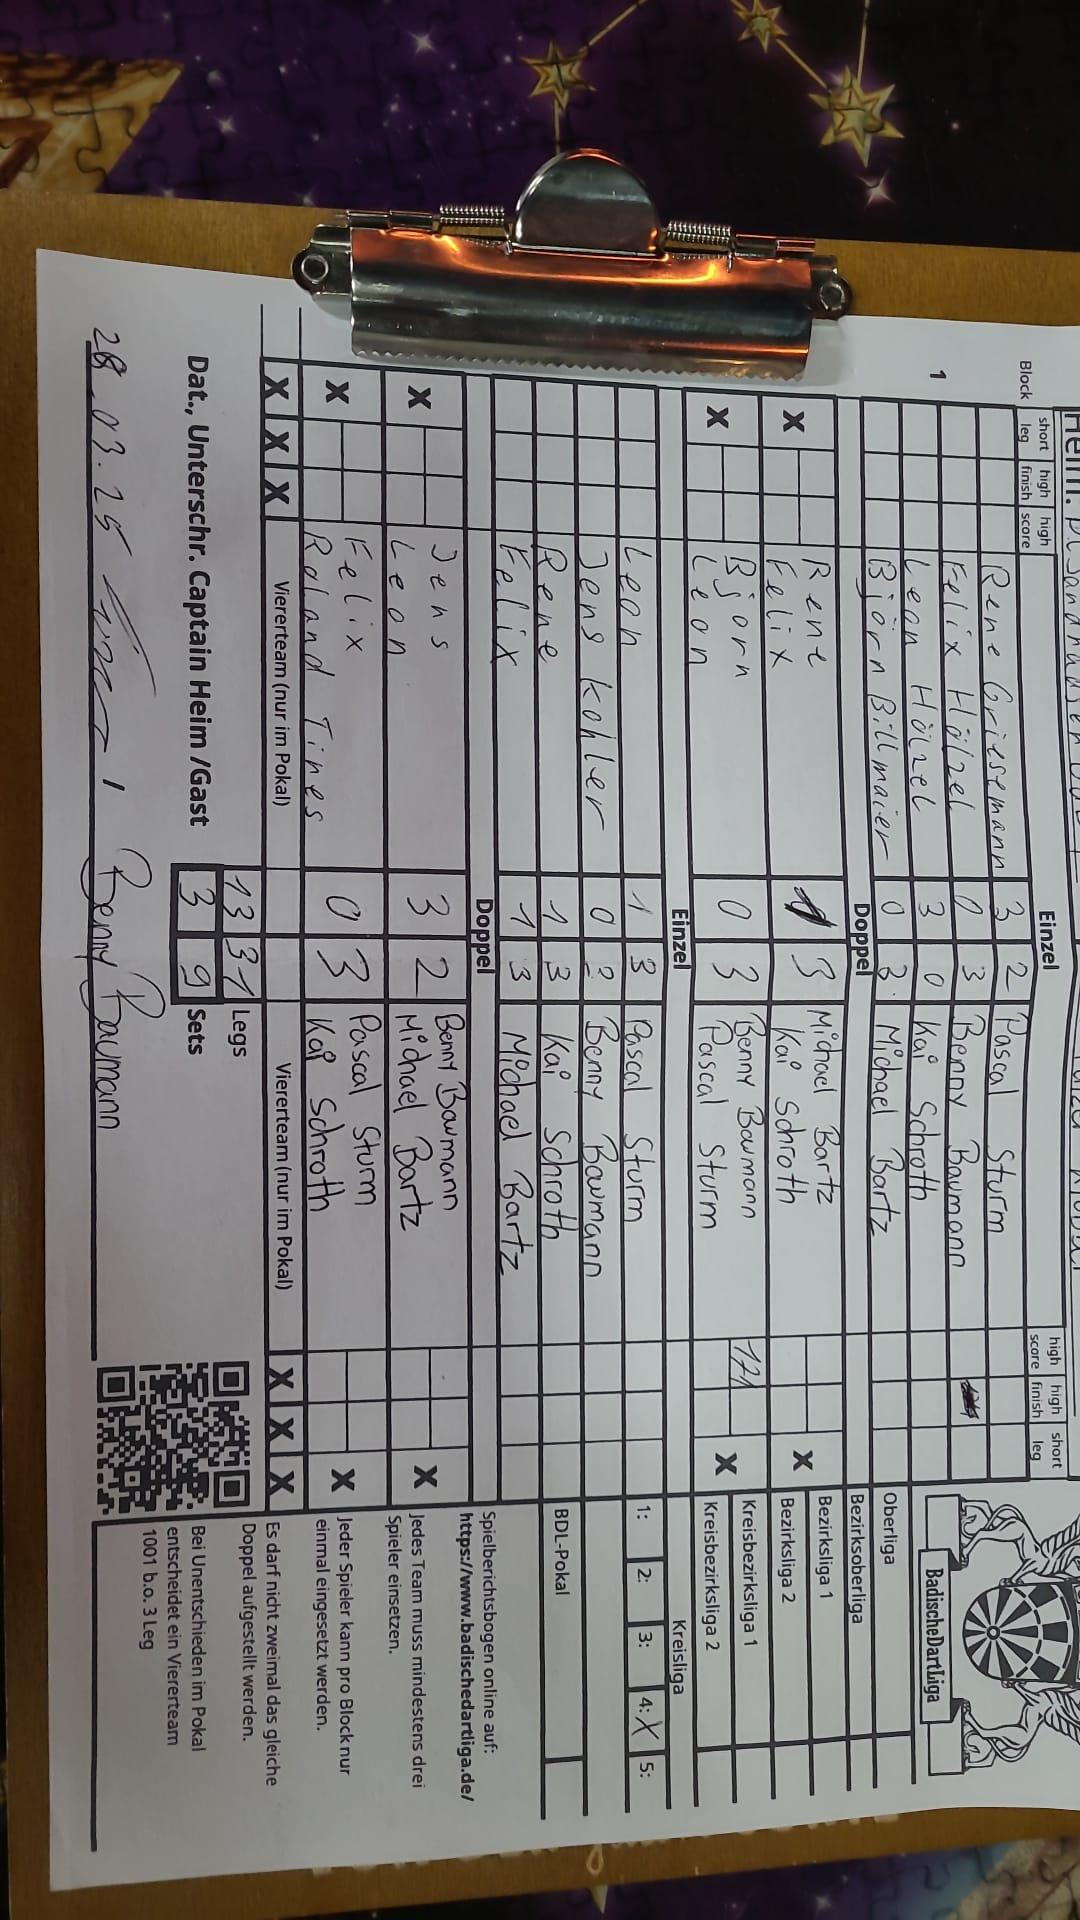 Heim:
Block short leg high finish high score Einzel high score high finish short leg
1
Rene Griesemann 3 2 Pascal Sturm
Felix Hölzel 0 3 Benny Baumann
Leon Hölzel 3 0 Kai Schroth
Björn Billmaier 0 3 Michael Bartz
Doppel
X Rene Felix 3 Michael Bartz Kai Schroth X
X Björn Leon 0 3 Benny Baumann Pascal Sturm 171 X
Einzel
Leon 1 3 Pascal Sturm
Jens Kohler 0 3 Benny Baumann
Rene 1 3 Kai Schroth
Felix 1 3 Michael Bartz
Doppel
X Jens Leon 3 2 Benny Baumann Michael Bartz X
X Felix Roland Tines 0 3 Pascal Sturm Kai Schroth X
X X X Viererteam (nur im Pokal) Viererteam (nur im Pokal) X X X
13 31 Legs
Dat., Unterschr. Captain Heim /Gast 3 9 Sets
28.03.25 / Benny Baumann
BadischeDartLiga
Oberliga
Bezirksoberliga
Bezirksliga 1
Bezirksliga 2
Kreisbezirksliga 1
Kreisbezirksliga 2
Kreisliga
1: 2: 3: 4: X 5:
BDL-Pokal
Spielberichtsbogen online auf:
https://www.badischedartliga.de/
Jedes Team muss mindestens drei
Spieler einsetzen.
Jeder Spieler kann pro Block nur
einmal eingesetzt werden.
Es darf nicht zweimal das gleiche
Doppel aufgestellt werden.
Bei Unentschieden im Pokal
entscheidet ein Viererteam
1001 b.o. 3 Leg